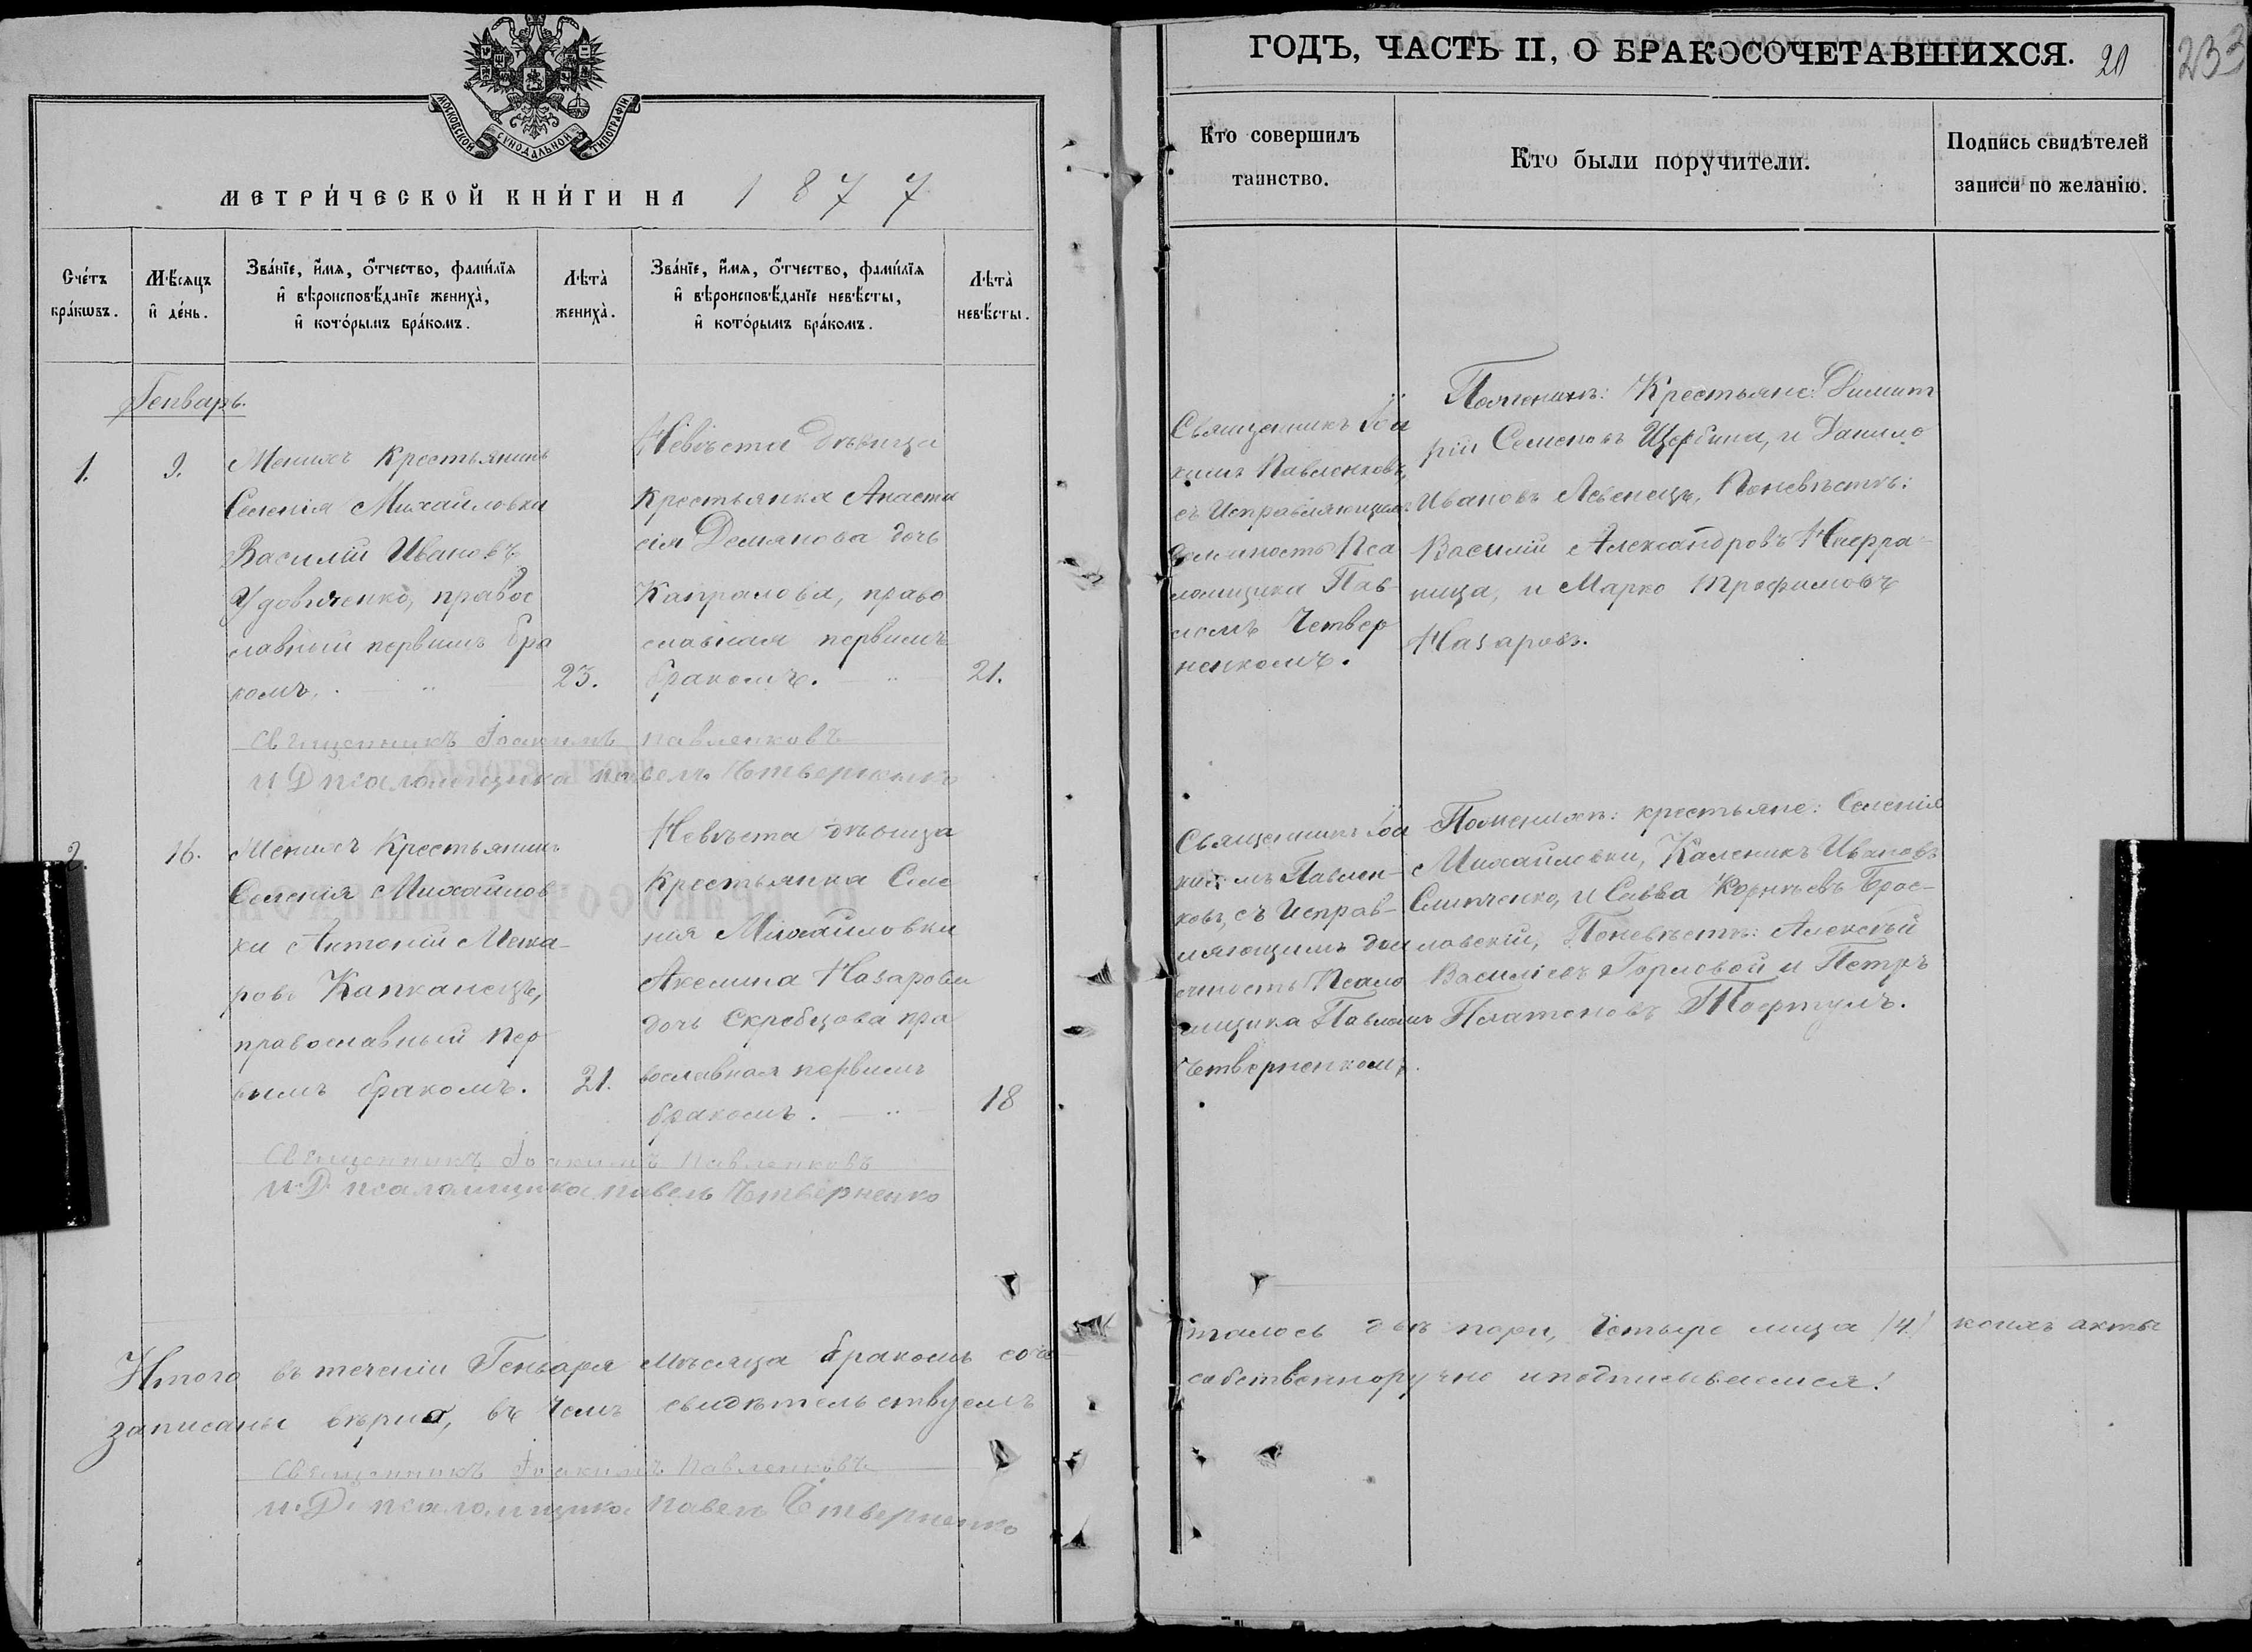 МОСКОВСКОЙ СѴНОДАЛЬНОЙ ТИПОГРАФІИ
МЕТРИ́ЧЕСКОЙ КНИ́ГИ НА 1877
Сче́тъ бра́кѡвъ.
Мѣ́сяцъ и҆ де́нь.
Зва́нїе, и҆́мѧ, ѻ҆́тчество, фами́лїѧ
и҆ вѣроисповѣ́данїе жениха̀,
и҆ кото́рымъ бра́комъ.
Лѣта̀
жениха̀.
Зва́нїе, и҆́мѧ, ѻ҆́тчество, фами́лїѧ
и҆ вѣроисповѣ́данїе невѣ́сты,
и҆ кото́рымъ бра́комъ.
Лѣта̀
невѣ́сты.
Генварь.
1.
9.
Женихъ Крестьянинъ
Селенія Михайловки
Василій Ивановъ
Удовиченко, правос
лавный первимъ бра
комъ.
23.
Невѣста дѣвица
Крестьянка Анаста
сія Демянова дочь
Капралова, право
славная первимъ
бракомъ.
21.
Священникъ Іоакимъ Павленковъ
И Д псаломщика Павелъ Четверненко
2.
16.
Женихъ Крестьянинъ
Селенія Михайлов
ки Антоній
ровъ Капканецъ,
православный пер
вымъ бракомъ.
21.
Невѣста дѣвица
Крестьянка Селе
нія Михайловки
Акелина Назарова
дочь Скребцова пра
вославная первимъ
бракомъ.
18
Священникъ Іоакимъ Павленковъ
И. Д. псаломщика Павелъ Четверненко
Итого въ теченіи Генваря мѣсяца бракомъ соче
записаны вѣрно, въ чемъ свидѣтельствуемъ
Священникъ Іоакимъ Павленковъ
И. Д. псаломщика Павелъ Четверненко
ГОДЪ, ЧАСТЬ II, О БРАКОСОЧЕТАВШИХСЯ.
20
233
Кто совершилъ
таинство.
Кто были поручители.
Подпись свидѣтелей
записи по желанію.
Священникъ Іоа
кимъ Павленковъ,
съ Исправляющимъ
должность Пса
ломщика Пав-
ломъ Четвер
ненкомъ.
Поженихѣ: Крестьяне: Димит
рій Семеновъ Щербина, и Данило
Ивановъ Левенецъ, Поневѣстѣ:
Василій Александровъ
ница, и Марко Трофимовъ
Назаровъ.
Священникъ Іоа
кимъ Павлен-
ковъ, съ Исправ-
ляющимъ дол
жность Псало
мщика Павломъ
Четверненкомъ.
Поженихѣ: крестьяне: Селенія
Михайловки, Каленикъ Ивановъ
Слипченко, и Савва Корнѣевъ Брос-
ловскій, Поневѣстѣ: Алексѣй
Василіевъ Горловой и Петръ
Платоновъ
талось двѣ пари, Четыре лица /4/ коихъ акты
собственноручно иподписываемся!